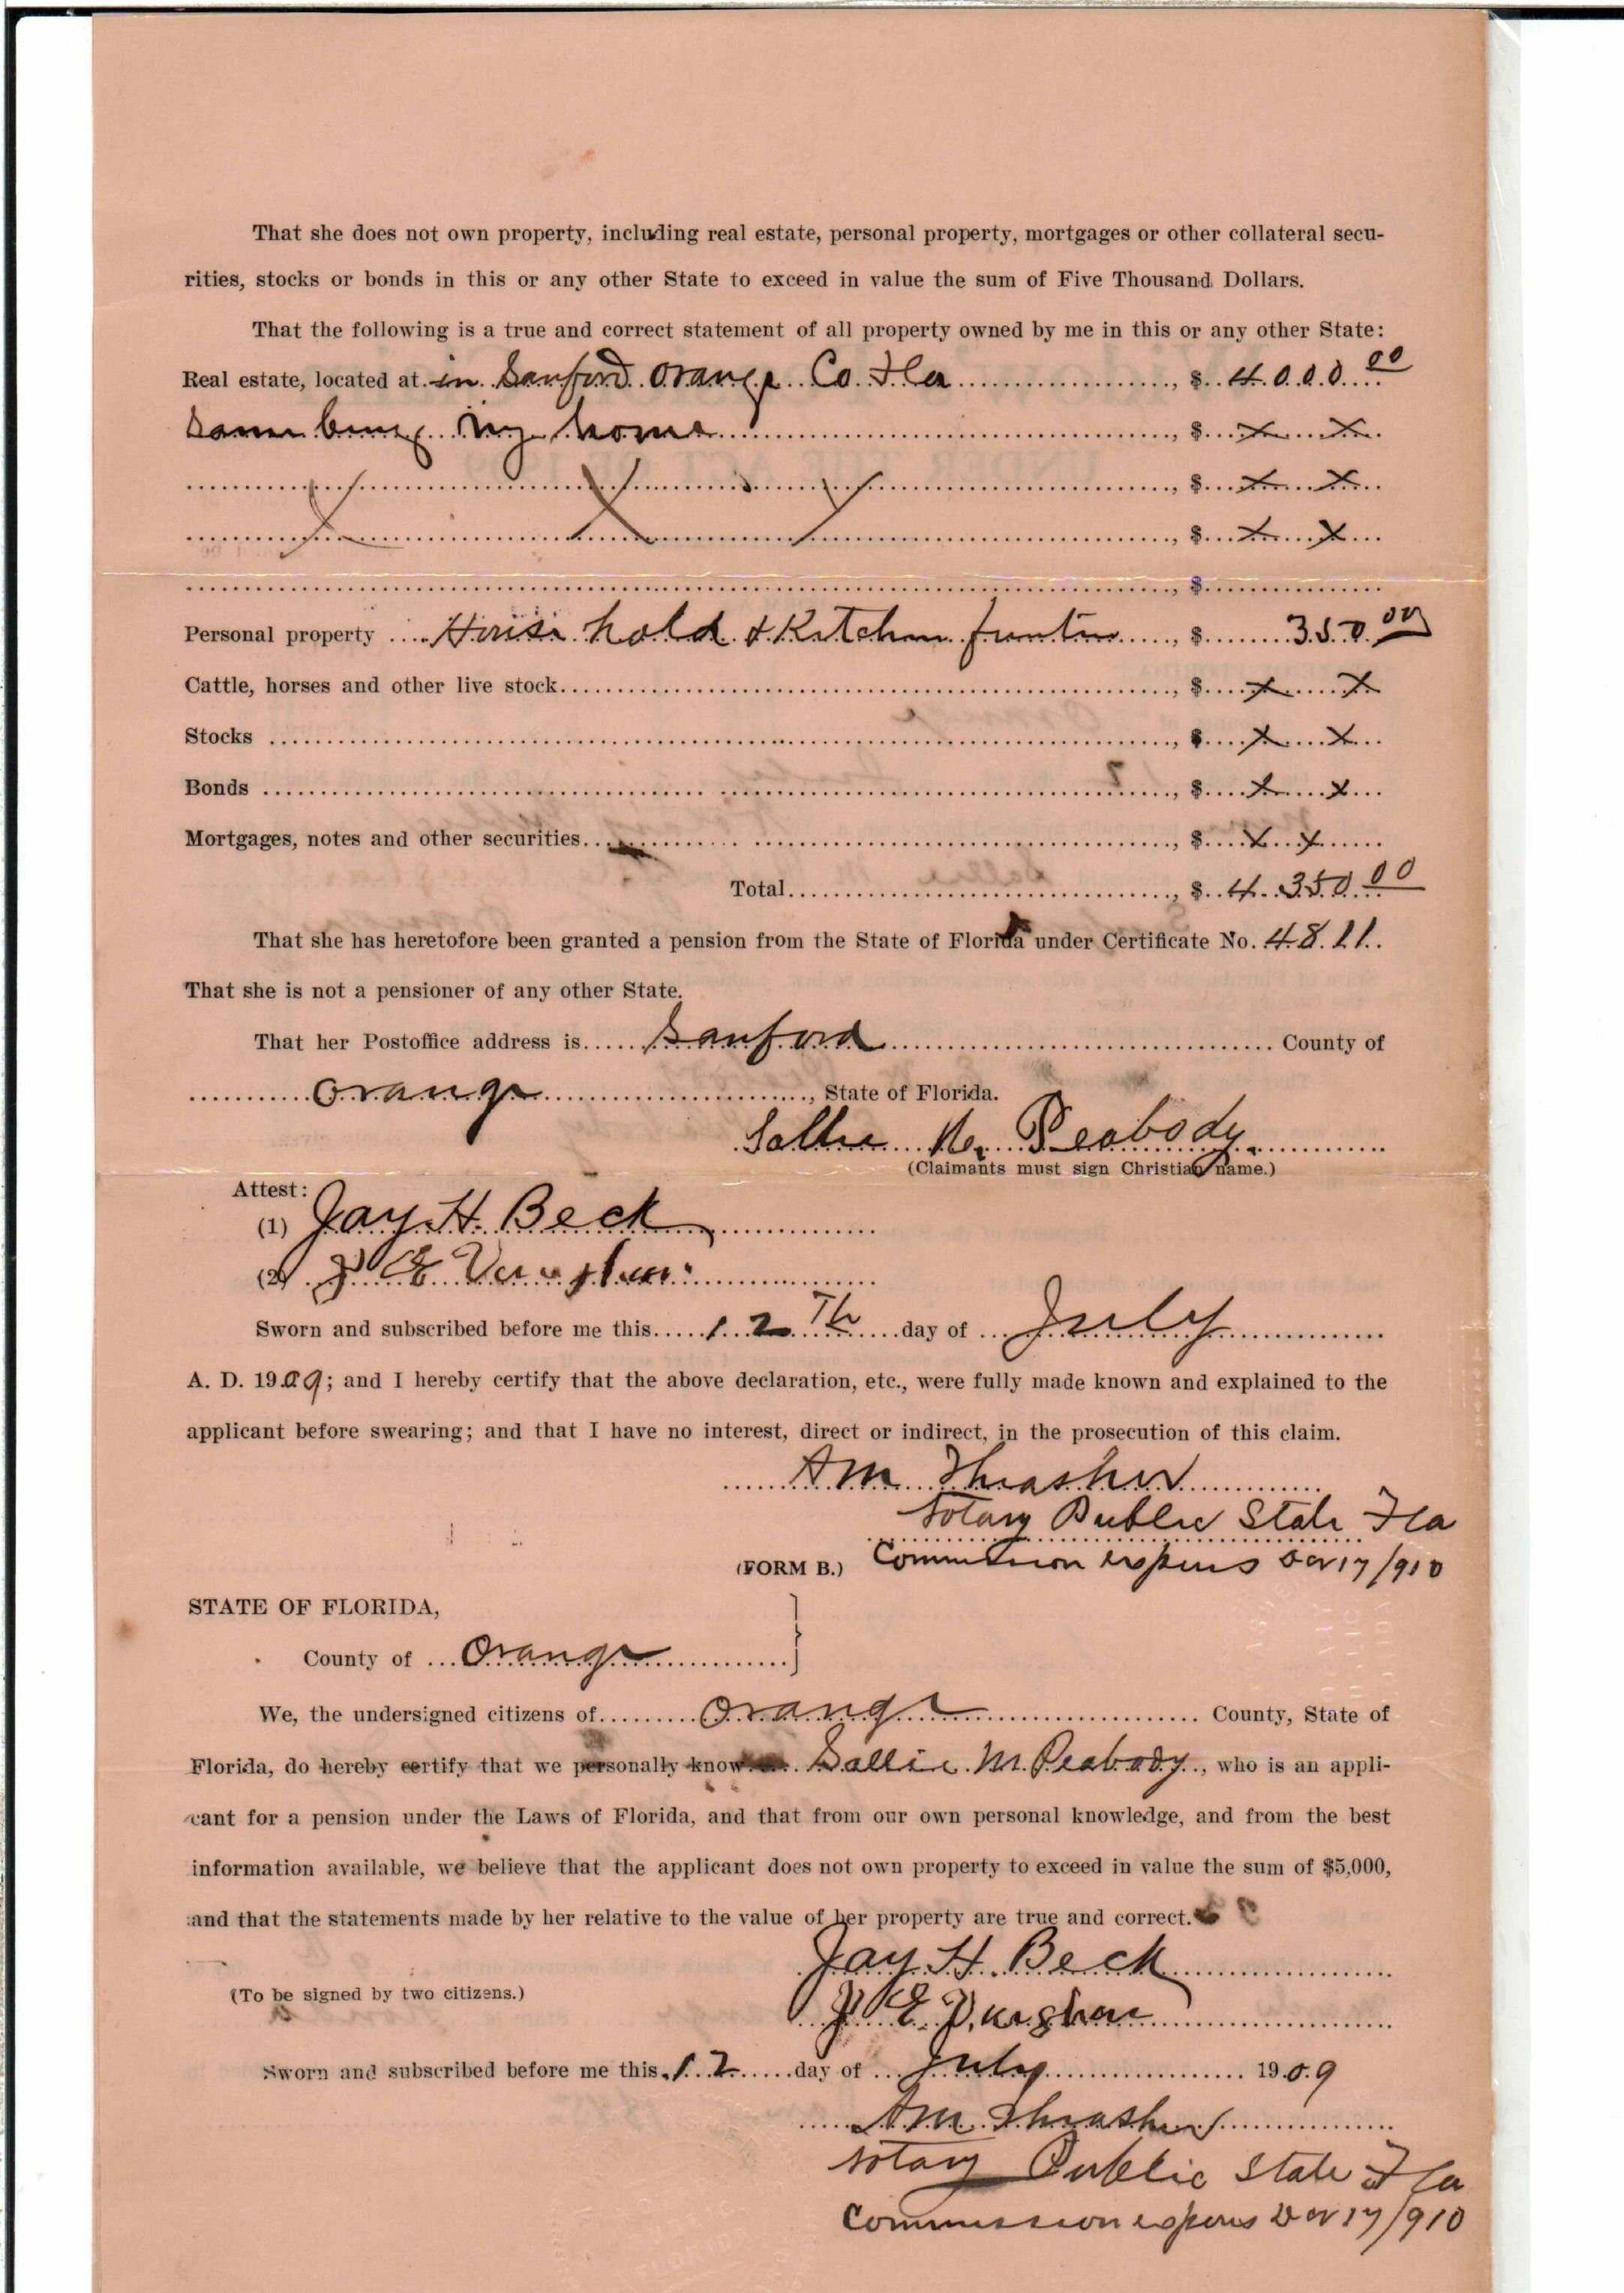 That she does not own property, including real estate, personal property, mortgages or other collateral secu-
rities, stocks or bonds in this or any other State to exceed in value the sum of Five Thousand Dollars.
That the following is a true and correct statement of all property owned by me in this or any other State:
Real estate, located at in Sanford Orange Co Fla, $ 4000.00
Same being my home, $ X X
X X X, $ X X
, $ X X
, $
Personal property House hold & Kitchen, $ 350.00
Cattle, horses and other live stock, $ X X
Stocks, $ X X
Bonds, $ X X
Mortgages, notes and other securities, $ X X
Total, $ 4350.00
That she has heretofore been granted a pension from the State of Florida under Certificate No. 4811.
That she is not a pensioner of any other State.
That her Postoffice address is Sanford County of
Orange, State of Florida.
Sallie M. Peabody.
(Claimants must sign Christian name.)
Attest:
(1) Jay H. Beck
(2) E Vaughan
Sworn and subscribed before me this 12Th day of July
A. D. 1909; and I hereby certify that the above declaration, etc., were fully made known and explained to the
applicant before swearing; and that I have no interest, direct or indirect, in the prosecution of this claim.
AM Thrasher
Notary Public State Fla
(FORM B.) Commission expires 17/910
STATE OF FLORIDA,
County of Orange
We, the undersigned citizens of Orange County, State of
Florida, do hereby certify that we personally know Sallie M Peabody, who is an appli-
cant for a pension under the Laws of Florida, and that from our own personal knowledge, and from the best
information available, we believe that the applicant does not own property to exceed in value the sum of $5,000,
and that the statements made by her relative to the value of her property are true and correct.
Jay H. Beck
(To be signed by two citizens.)
E. Vaughan
Sworn and subscribed before me this 12 day of July 1909
AM Thrasher
Notary Public State Fla
Commission expires 17/910